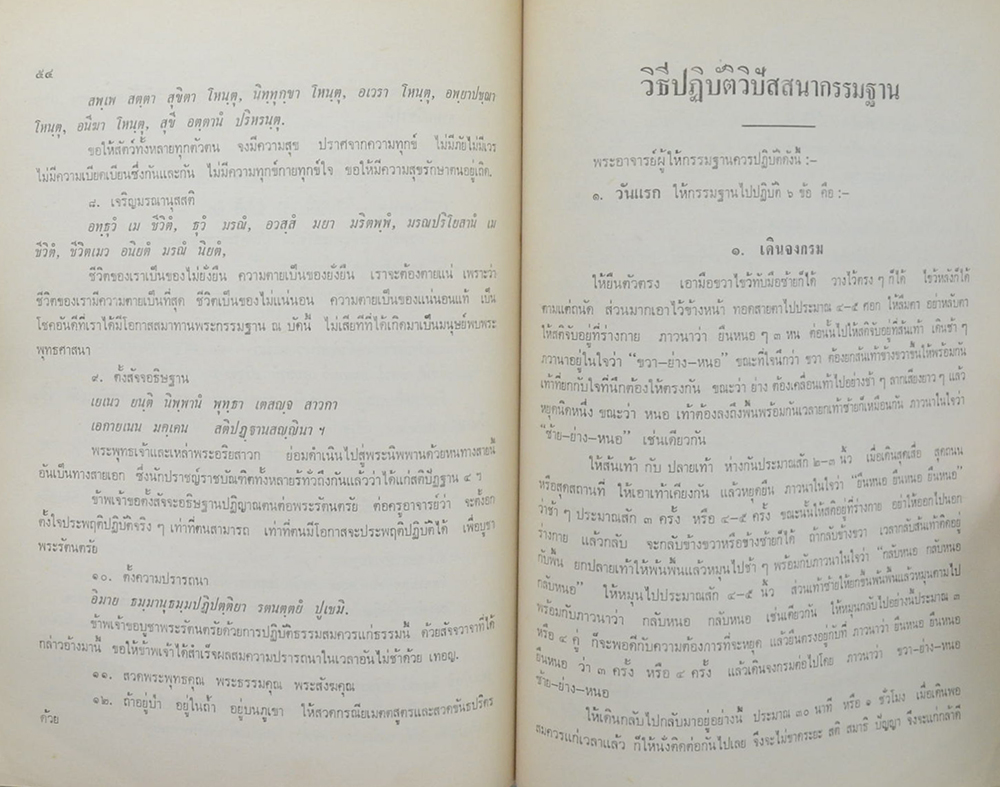 ๕๔
สพฺเพ สตฺตา สุขิตา โหนฺตุ, นิทฺทุกฺขา โหนฺตุ, อเวรา โหนฺตุ, อพฺยาปชฺฌา
โหนฺตุ, อนีฆา โหนฺตุ, สุขี อตฺตานํ ปริหรนฺตุ.
ขอให้สัตว์ทั้งหลายทุกตัวตน จงมีความสุข ปราศจากความทุกข์ ไม่มีภัยไม่มีเวร
ไม่มีความเบียดเบียนซึ่งกันและกัน ไม่มีความทุกข์กายทุกข์ใจ ขอให้มีความสุขรักษาตนอยู่เถิด.
๘. เจริญมรณานุสสติ
อทฺธุวํ เม ชีวิตํ, ธุวํ มรณํ, อวสฺสํ มยา มริตพฺพํ, มรณปริโยสานํ เม
ชีวิตํ, ชีวิตเมว อนิยตํ มรณํ นิยตํ,
ชีวิตของเราเป็นของไม่ยั่งยืน ความตายเป็นของยั่งยืน เราจะต้องตายแน่ เพราะว่า
ชีวิตของเรามีความตายเป็นที่สุด ชีวิตเป็นของไม่แน่นอน ความตายเป็นของแน่นอนแท้ เป็น
โชคอันดีที่เราได้มีโอกาสมาสมาทานพระกรรมฐาน ณ บัดนี้ ไม่เสียทีที่ได้เกิดมาเป็นมนุษย์พบพระ
พุทธศาสนา
๙. ตั้งสัจจอธิษฐาน
เยเนว ยนฺติ นิพฺพานํ พุทฺธา เตสญฺจ สาวกา
เอกายเนน มคฺเคน สติปฏฺฐานสญฺญินา ฯ
พระพุทธเจ้าและเหล่าพระอริยสาวก ย่อมดำเนินไปสู่พระนิพพานด้วยหนทางสายนี้
อันเป็นทางสายเอก ซึ่งนักปราชญ์ราชบัณฑิตทั้งหลายรู้ทั่วถึงกันแล้วว่าได้แก่สติปัฏฐาน ๔ ฯ
ข้าพเจ้าขอตั้งสัจจะอธิษฐานปฏิญาณตนต่อพระรัตนตรัย ต่อครูอาจารย์ว่า จะตั้งอก
ตั้งใจประพฤติปฏิบัติจริงๆ เท่าที่ตนสามารถ เท่าที่ตนมีโอกาสจะประพฤติปฏิบัติได้ เพื่อบูชา
พระรัตนตรัย
๑๐. ตั้งความปรารถนา
อิมาย ธมฺมานุธมฺมปฏิปตฺติยา รตนตฺตยํ ปูเชมิ.
ข้าพเจ้าขอบูชาพระรัตนตรัยด้วยการปฏิบัติธรรมสมควรแก่ธรรมนี้ ด้วยสัจจวาจาที่ได้
กล่าวอ้างมานี้ ขอให้ข้าพเจ้าได้สำเร็จผลสมความปรารถนาในเวลาอันไม่ช้าด้วย เทอญ.
๑๑. สวดพระพุทธคุณ พระธรรมคุณ พระสังฆคุณ
๑๒. ถ้าอยู่ป่า อยู่ในถ้ำ อยู่บนภูเขา ให้สวดกรณียเมตตสูตรและสวดขันธปริตร
ด้วย
วิธีปฏิบัติวิปัสสนากรรมฐาน
พระอาจารย์ผู้ให้กรรมฐานควรปฏิบัติดังนี้ :–
๑. วันแรก ให้กรรมฐานไปปฏิบัติ ๖ ข้อ คือ :–
๑. เดินจงกรม
ให้ยืนตัวตรง เอามือขวาไขว้ทับมือซ้ายก็ได้ วางไว้ตรงๆ ก็ได้ ไขว้หลังก็ได้
ตามแต่ถนัด ส่วนมากเอาไว้ข้างหน้า ทอดสายตาไปประมาณ ๔–๕ ศอก ให้ลืมตา อย่าหลับตา
ให้สติจับอยู่ที่ร่างกาย ภาวนาว่า ยืนหนอ ๆ ๓ หน ต่อนั้นไปให้สติจับอยู่ที่ส้นเท้า เดินช้า ๆ
ภาวนาอยู่ในใจว่า “ขวา–ย่าง–หนอ” ขณะที่ใจนึกว่า ขวา ต้องยกส้นเท้าข้างขวาขึ้นให้พร้อมกัน
เท้าที่ยกกับใจที่นึกต้องให้ตรงกัน ขณะว่า ย่าง ต้องเคลื่อนเท้าไปอย่างช้า ๆ ลากเสียงยาว ๆ แล้ว
หยุดนิดหนึ่ง ขณะว่า หนอ เท้าต้องลงถึงพื้นพร้อมกันเวลายกเท้าซ้ายก็เหมือนกัน ภาวนาในใจว่า
“ซ้าย–ย่าง–หนอ” เช่นเดียวกัน
ให้ส้นเท้า กับ ปลายเท้า ห่างกันประมาณสัก ๒–๓ นิ้ว เมื่อเดินสุดเสื่อ สุดถนน
หรือสุดสถานที่ ให้เอาเท้าเคียงกัน แล้วหยุดยืน ภาวนาในใจว่า “ยืนหนอ ยืนหนอ ยืนหนอ”
ว่าช้า ๆ ประมาณสัก ๓ ครั้ง หรือ ๔–๕ ครั้ง ขณะนั้นให้สติอยู่ที่ร่างกาย อย่าให้ออกไปนอก
ร่างกาย แล้วกลับ จะกลับข้างขวาหรือข้างซ้ายก็ได้ ถ้ากลับข้างขวา เวลากลับส้นเท้าติดอยู่
กับพื้น ยกปลายเท้าให้พ้นพื้นแล้วหมุนไปช้า ๆ พร้อมกับภาวนาในใจว่า “กลับหนอ กลับหนอ
กลับหนอ” ให้หมุนไปประมาณสัก ๔–๕ นิ้ว ส่วนเท้าซ้ายให้ยกขึ้นพ้นพื้นแล้วหมุนตามไป
พร้อมกับภาวนาว่า กลับหนอ กลับหนอ เช่นเดียวกัน ให้หมุนกลับไปอย่างนี้ประมาณ ๓
หรือ ๔ คู่ ก็จะพอดีกับความต้องการที่จะหยุด แล้วยืนตรงอยู่กับที่ ภาวนาว่า ยืนหนอ ยืนหนอ
ยืนหนอ ว่า ๓ ครั้ง หรือ ๔ ครั้ง แล้วเดินจงกรมต่อไปโดย ภาวนาว่า ขวา–ย่าง–หนอ
ซ้าย–ย่าง–หนอ
ให้เดินกลับไปกลับมาอยู่อย่างนี้ ประมาณ ๓๐ นาที หรือ ๑ ชั่วโมง เมื่อเดินพอ
สมควรแก่เวลาแล้ว ก็ให้นั่งติดต่อกันไปเลย จึงจะไม่ขาดระยะ สติ สมาธิ ปัญญา จึงจะแก่กล้าดี